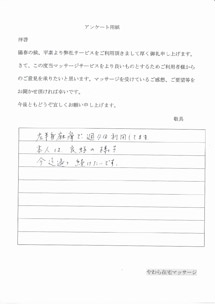 アンケート用紙
拝啓
猛暑の候、平素より弊社サービスをご利用頂きまして厚く御礼申し上げます。
さて、この度当マッサージサービスをより良いものとするためご利用者様から
のご意見を承りたいと思います。マッサージを受けているご感想、ご要望等を
お聞かせ頂ければ幸いです。
今後ともどうぞ宜しくお願い申し上げます。
敬具
週4回利用してます
本人は良好の様子
今迄通り続けたいです。
やわら在宅マッサージ